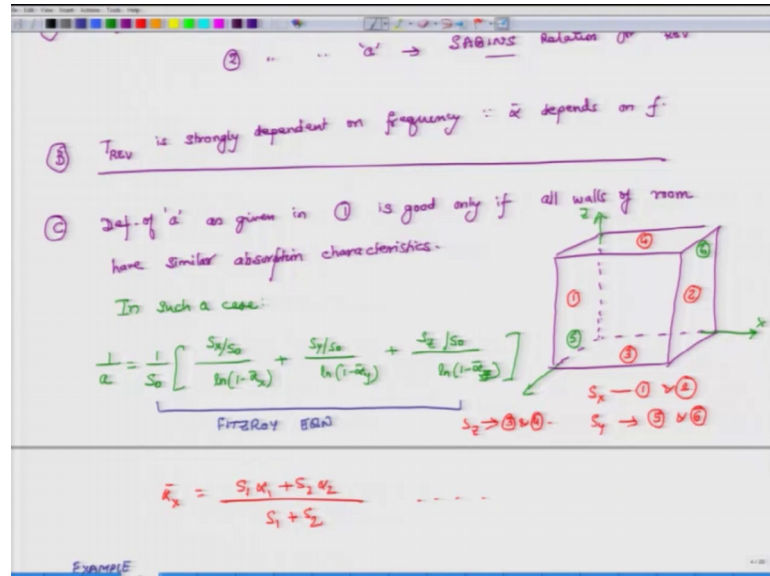 ② " " 'a' → SABINS Relation for REV
Ⓑ T_REV is strongly dependent on frequency ∵ ᾱ depends on f.
Ⓒ Def. of 'a' as given in ① is good only if all walls of room
have similar absorption characteristics.
In such a case:
1/a = 1/S₀ [ (Sx/S₀)/ln(1-ᾱx) + (Sy/S₀)/ln(1-ᾱy) + (Sz/S₀)/ln(1-ᾱz) ]
FITZROY EQN
Z
④
⑥
①
②
X
⑤
③
Sx — ① & ②
Sz → ③ & ④. Sy → ⑤ & ⑥
ᾱx = (S₁α₁ + S₂α₂)/(S₁ + S₂) - - - - -
EXAMPLE